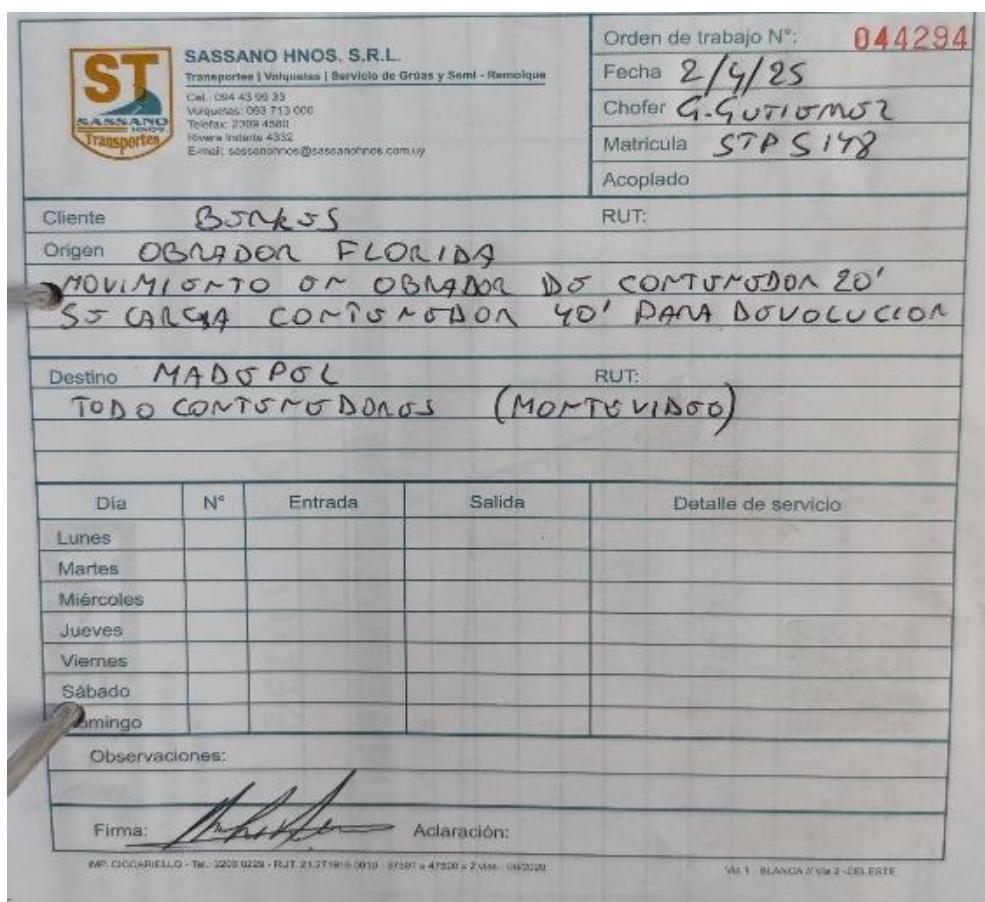 Orden de trabajo N°: 044294
ST
SASSANO
HNOS.
Transportes
SASSANO HNOS. S.R.L.
Transportes | Volquetas | Servicio de Grúas y Semi - Remolque
Cel.: 094 43 99 33
Volquetas: 093 713 000
Telefax: 2309 4580
Rivera Indarte 4332
E-mail: sassanohnos@sassanohnos.com.uy
Fecha 2/4/25
Chofer G. GUTIERREZ
Matricula STP 5148
Acoplado
Cliente BERKES RUT:
Origen OBRADOR FLORIDA
MOVIMIENTO EN OBRADOR DE CONTENEDOR 20'
SE CARGA CONTENEDOR 40' PARA DEVOLUCION
Destino MADEPOL RUT:
TODO CONTENEDORES (MONTEVIDEO)
Día N° Entrada Salida Detalle de servicio
Lunes
Martes
Miércoles
Jueves
Viernes
Sábado
Domingo
Observaciones:
Firma: Aclaración:
IMP. CICCARIELLO - Tel.: 2203 - R.U.T. 37501 a 47500 x 2 vías
Vía 1 - BLANCA // Vía 2 - CELESTE